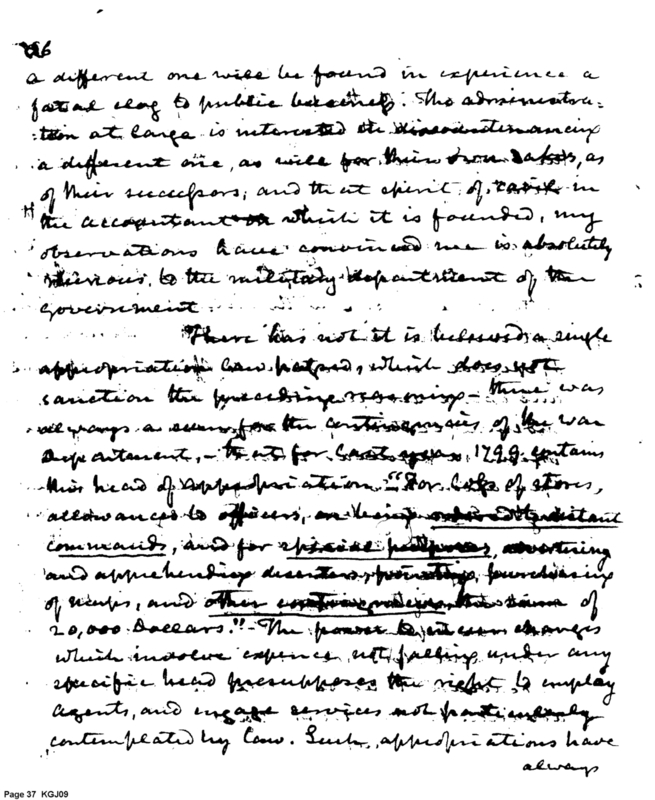 a different one will be found in experience a
fatal clog to public business. The administra-
-tion at large is interested in discountenancing
a different one, as well for their own sakes, as
of their successors; and that spirit of cavil in
the accountant on which it is founded, my
observations have convinced me is absolutely
to the military department of the
government
There has not it is believed a single
appropriation law passed, which does not
sanction the preceding reasoning - there was
always a sum for the contingencies of the war
Department, - that for last year 1799 contains
this head of appropriation "For loss of stores,
allowances to officers, on being ordered to distant
commands, and for special purposes, advertising
and apprehending deserters, printing, purchasing
of maps, and other contingencies the sum of
20,000 Dollars." - The power to incur charges
which involve expence not falling under any
specific head presupposes the right to employ
agents, and engage services not particularly
contemplated by law. Such, appropriations have
always
Page 37 KGJ09